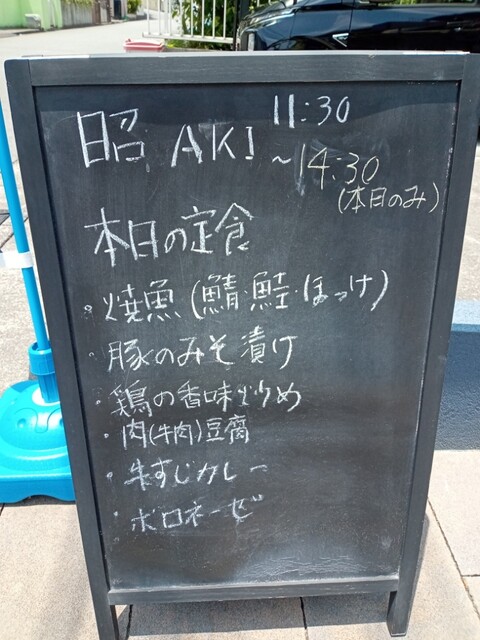 昭 AKI 11:30
～14:30
(本日のみ)
本日の定食
・焼魚(鯖・鮭・ほっけ)
・豚のみそ漬け
・鶏の香味炒め
・肉(牛肉)豆腐
・牛すじカレー
・ボロネーゼ